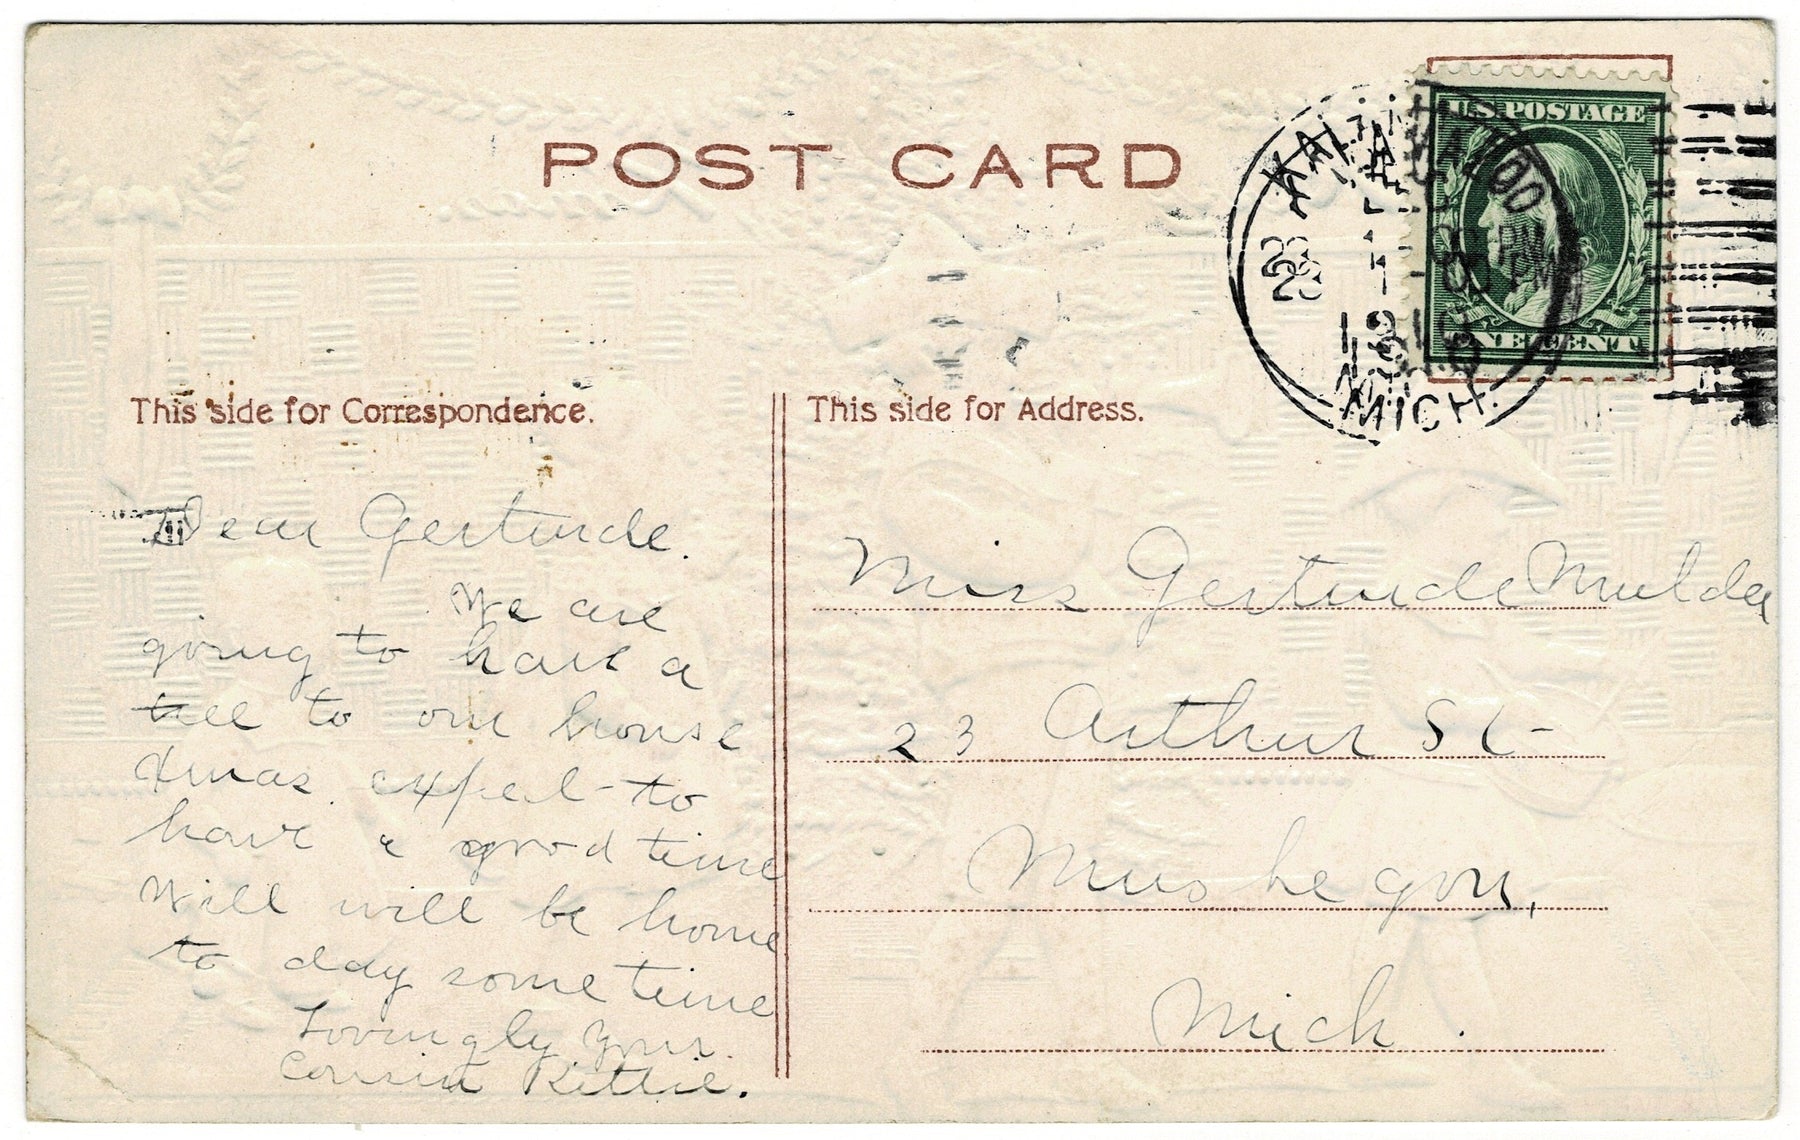 POST CARD
U.S. POSTAGE
ONE CENT
KALAMAZOO
PM
MICH.
This side for Correspondence.
Dear Gertrude.
We are
going to have a
tree to our house
Xmas. expect to
have a good time
Will will be home
to day some time
Lovingly Your
Cousin Kittie.
This side for Address.
Miss Gertrude Mulder
23 Arthur St-
Muskegon,
Mich.